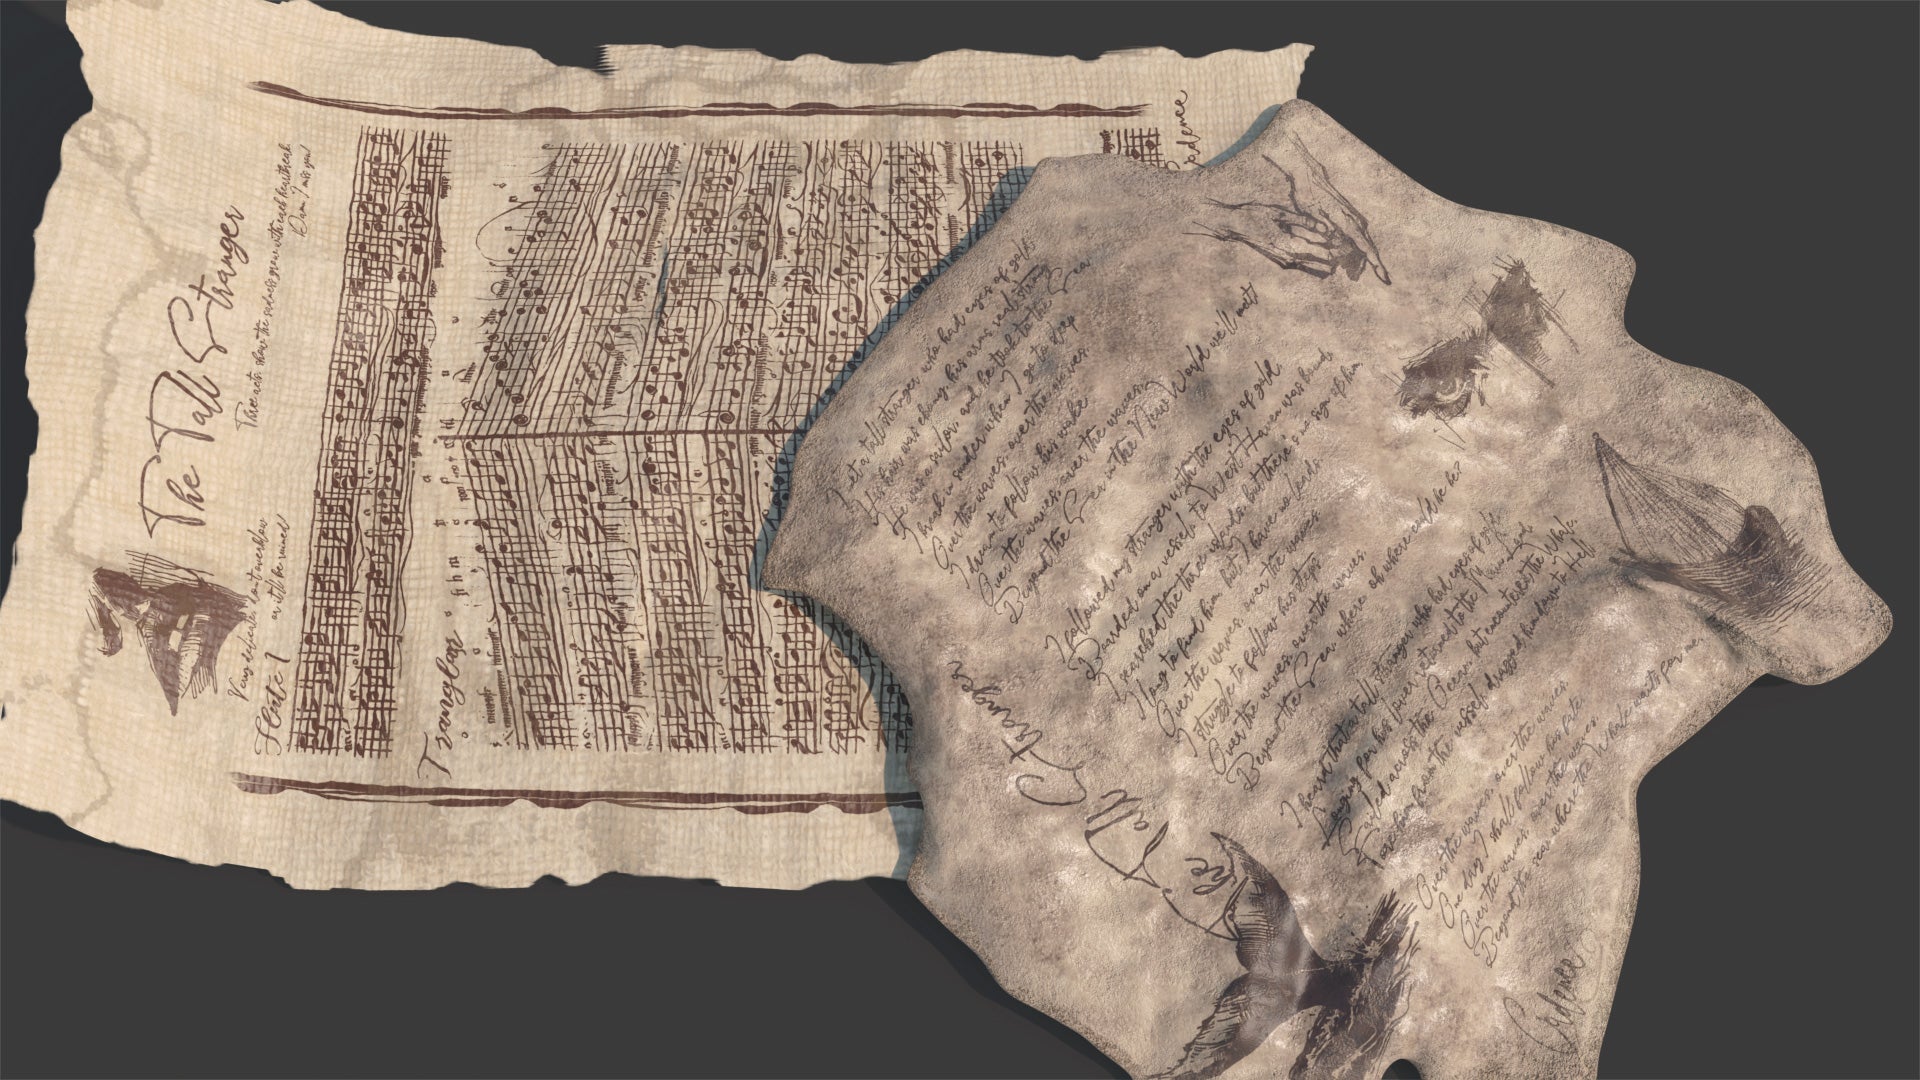 The Tall Stranger
Three acts show the sadness grow with each heartbreak
Damn, I miss you!
Very delicate don't overblow
or it'll be ruined
Flute 1
Tranglar
Cadence
The Tall Stranger
I met a tall stranger who had eyes of gold
His hair was his arms and strong
He was a sailor, and he took to the Sea
I break in sunder when I go to sleep
Over the waves, over the waves
I dream to follow his wake
Over the waves, over the waves
Beyond the Sea in the New World we'll meet
I followed my stranger with the eyes of gold
Boarded on a vessel to West Haven was bound
I searched the three islands but there's no sign of him
I long to find him but I have no leads
Over the waves, over the waves
I struggle to follow his steps
Over the waves, over the waves
Beyond the Sea where oh where could he be?
I heard that a tall stranger who had eyes of gold
Longing for his lover returned to the
Sailed across the Ocean but encountered the Whale
Tore him from the vessel, dragged him down to Hell
Over the waves, over the waves
One day I shall follow his fate
Over the waves, over the waves
Beyond the sea where the Whale waits for me.
Cadence